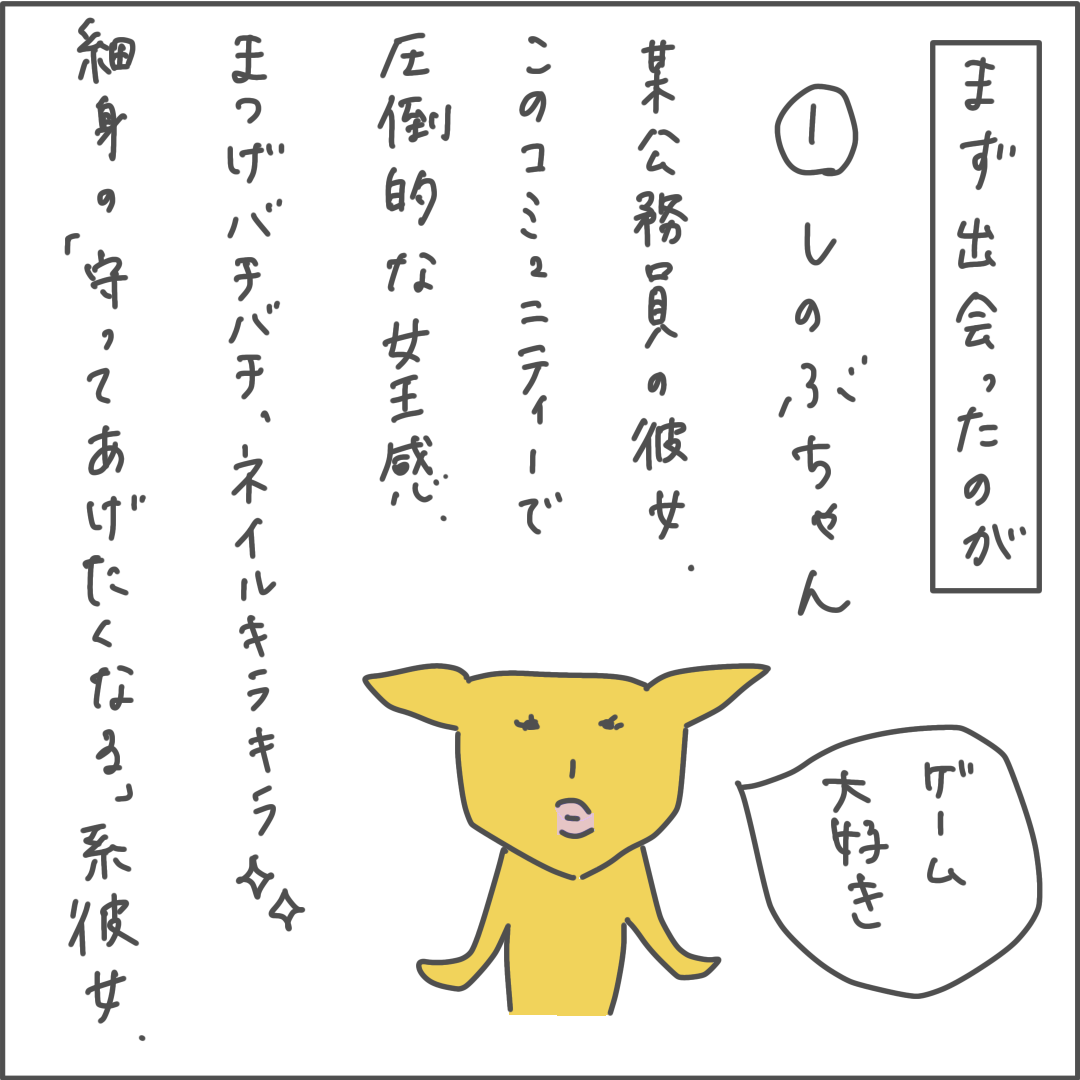 まず出会ったのが
①しのぶちゃん
某公務員の彼女.
このコミュニティーで
圧倒的な女王感.
まつげバチバチ、ネイルキラキラ
細身の「守ってあげたくなる」系彼女.
ゲーム
大好き